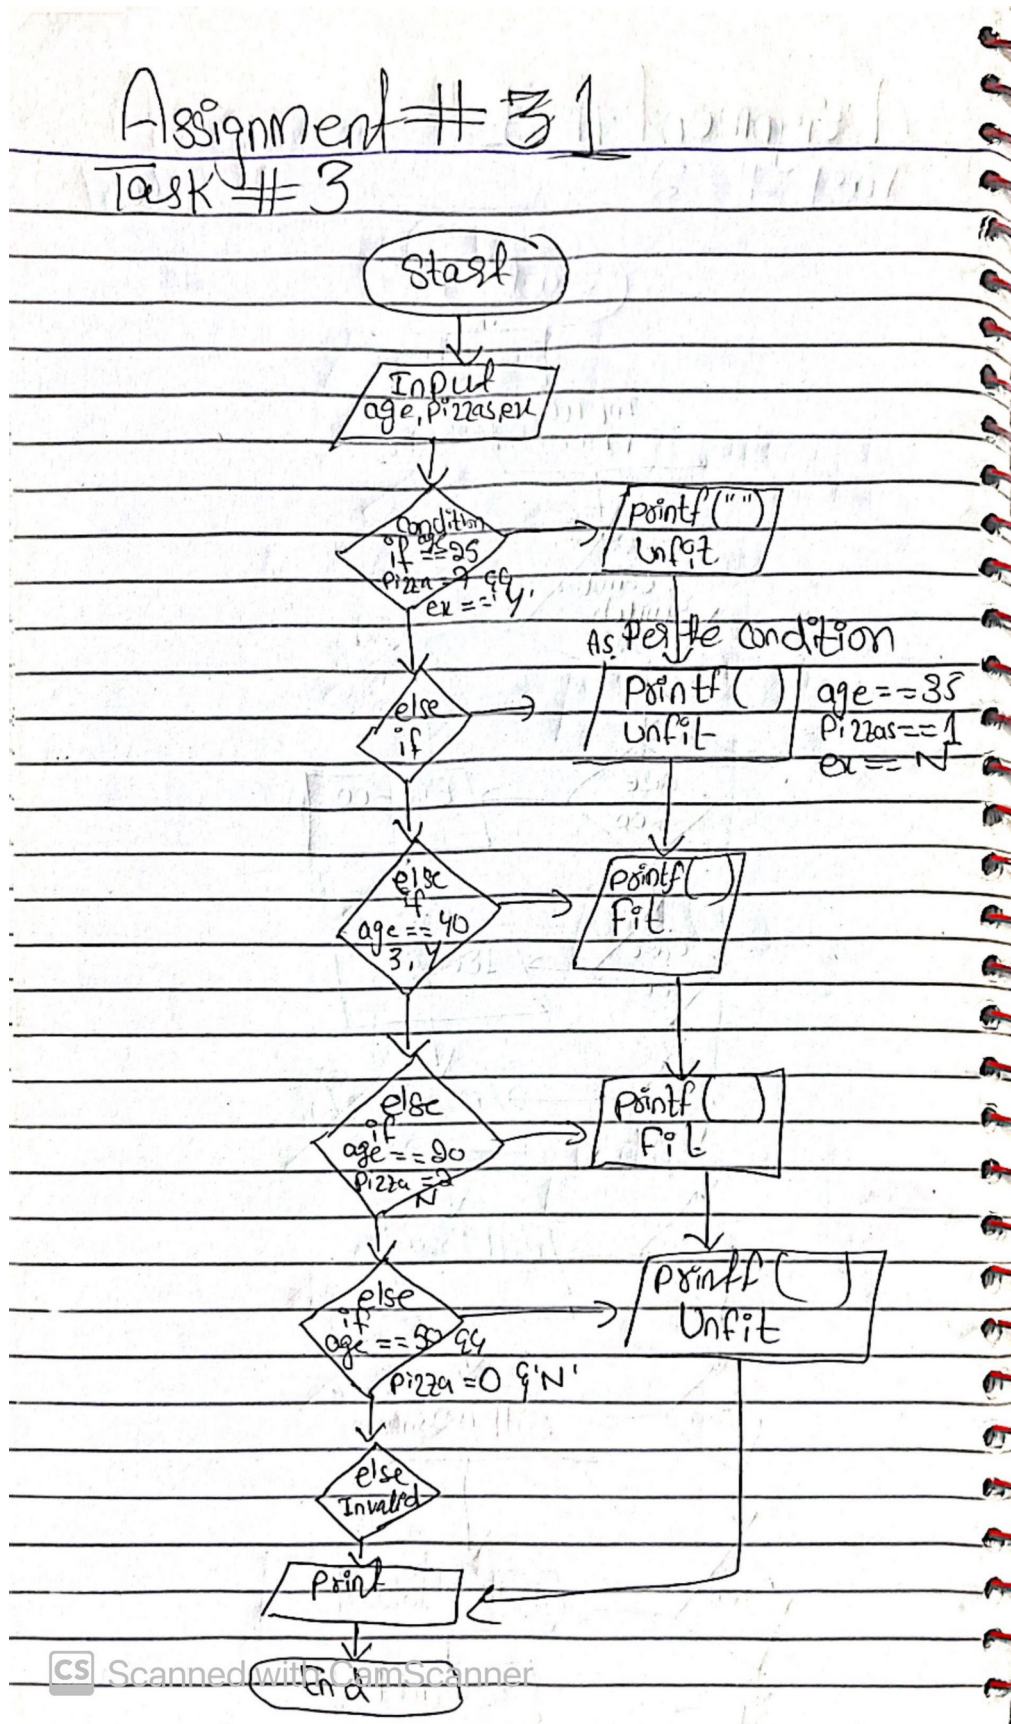 Assignment # 31
Task # 3
Start
Input
age, pizzas, ex
condition
if age == 25
Pizza = 7 &&
ex == 'Y'
printf (" ")
Unfit
As Per the condition
else
if
printf ( )
unfit
age == 35
Pizzas == 1
ex == N
else
if
age == 40
3, Y
printf( )
Fit
else
if
age == 20
Pizza = 2
N
printf ( )
Fit
else
if
age == 50 &&
Pizza = 0 & 'N'
printf ( )
Unfit
else
Invalid
Print
End
CS Scanned with CamScanner